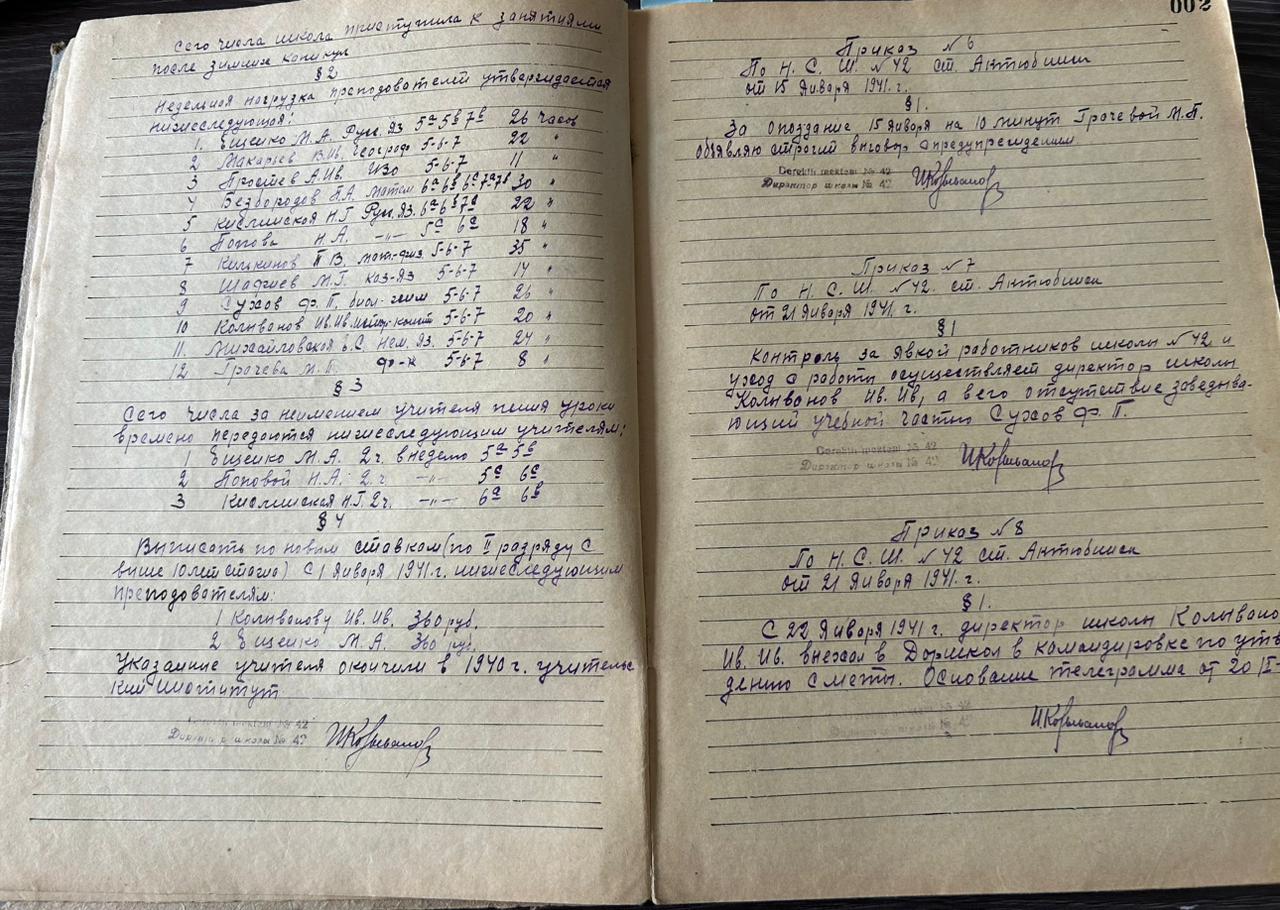 Сего числа школа приступила к занятиям
после зимних каникул
§ 2
Недельная нагрузка преподователей утверждается
нижеследующая:
1. Ещенко М.А. Русс. Яз 5а 5б 7б 26 часов
2 Макарьев В.Ив. Географ 5-6-7 22 "
3 Простев А.Ив. ИЗО 5-6-7 11 "
4 Безбородов П.А. матем 6а 6б 6с 7а 7б 30 "
5 Кислинская Н.Г Русс. Яз. 6а 6б 7а 22 "
6 Попова Н.А. -"- 5с 6с 18 "
7 Килькинов П В. мат.-физ 5-6-7 35 "
8 Шафиев М.Г. каз-яз 5-6-7 14 "
9 Сухов Ф.П. биол-хим 5-6-7 26 "
10 Колыванов Ив.Ив. истор-конст 5-6-7 20 "
11. Михайловская С. Нем. Яз. 5-6-7 24 "
12 Грачева М.П. Ф-к 5-6-7 8 "
§ 3
Сего числа за неимением учителя пения уроки
времено передаются нижеследующим учителям:
1 Ещенко М.А. 2ч. в неделю 5а 5б
2 Поповой Н.А. 2ч -"- 5с 6с
3 Кислинская Н.Г. 2ч. -"- 6а 6б
§ 4
Выписать по новым ставкам (по II разряду с
выше 10 лет стажа) с 1 января 1941 г. нижеследующим
преподователям:
1 Колыванову Ив. Ив. 360 руб.
2 Ещенко М.А. 360 руб.
Указанные учителя окончили в 1940 г. учительс
кий институт
Derektir mektebi № 42
Директор школы № 42 И.Колыванов
002
Приказ № 6
По Н. С. Ш. № 42 ст. Актюбинск
от 15 Января 1941. г.
§ 1.
За опоздание 15 января на 10 минут Грачевой М.П.
обявляю строгий выговор с предупреждением
Derektir mektebi № 42
Директор школы № 42 И.Колыванов
Приказ № 7
По Н. С. Ш. № 42. ст. Актюбинск
от 21 Января 1941. г.
§ 1
Контроль за явкой работников школы № 42 и
уход с работы осуществляет директор школы
Колыванов Ив. Ив, а в его отсутствие заведыва-
ющий учебной частью Сухов Ф. П.
Derektir mektebi № 42
Директор школы № 42 И.Колыванов
Приказ № 8
По Н. С. Ш. № 42 ст. Актюбинск
от 21 Января 1941. г.
§ 1.
С 22 Января 1941 г. директор школы Колывано
Ив. Ив. выехал в Доршкол в командировке по утв
дению сметы. Основание телеграмма от 20/I-
И.Колыванов